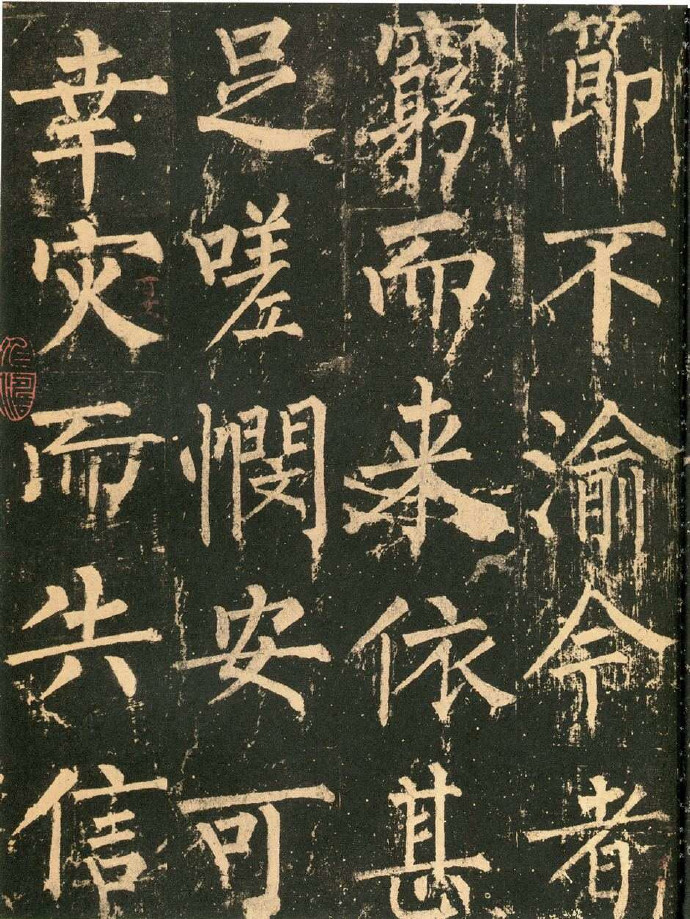 節不渝今者
窮而来依甚
足嗟憫安可
幸灾而失信